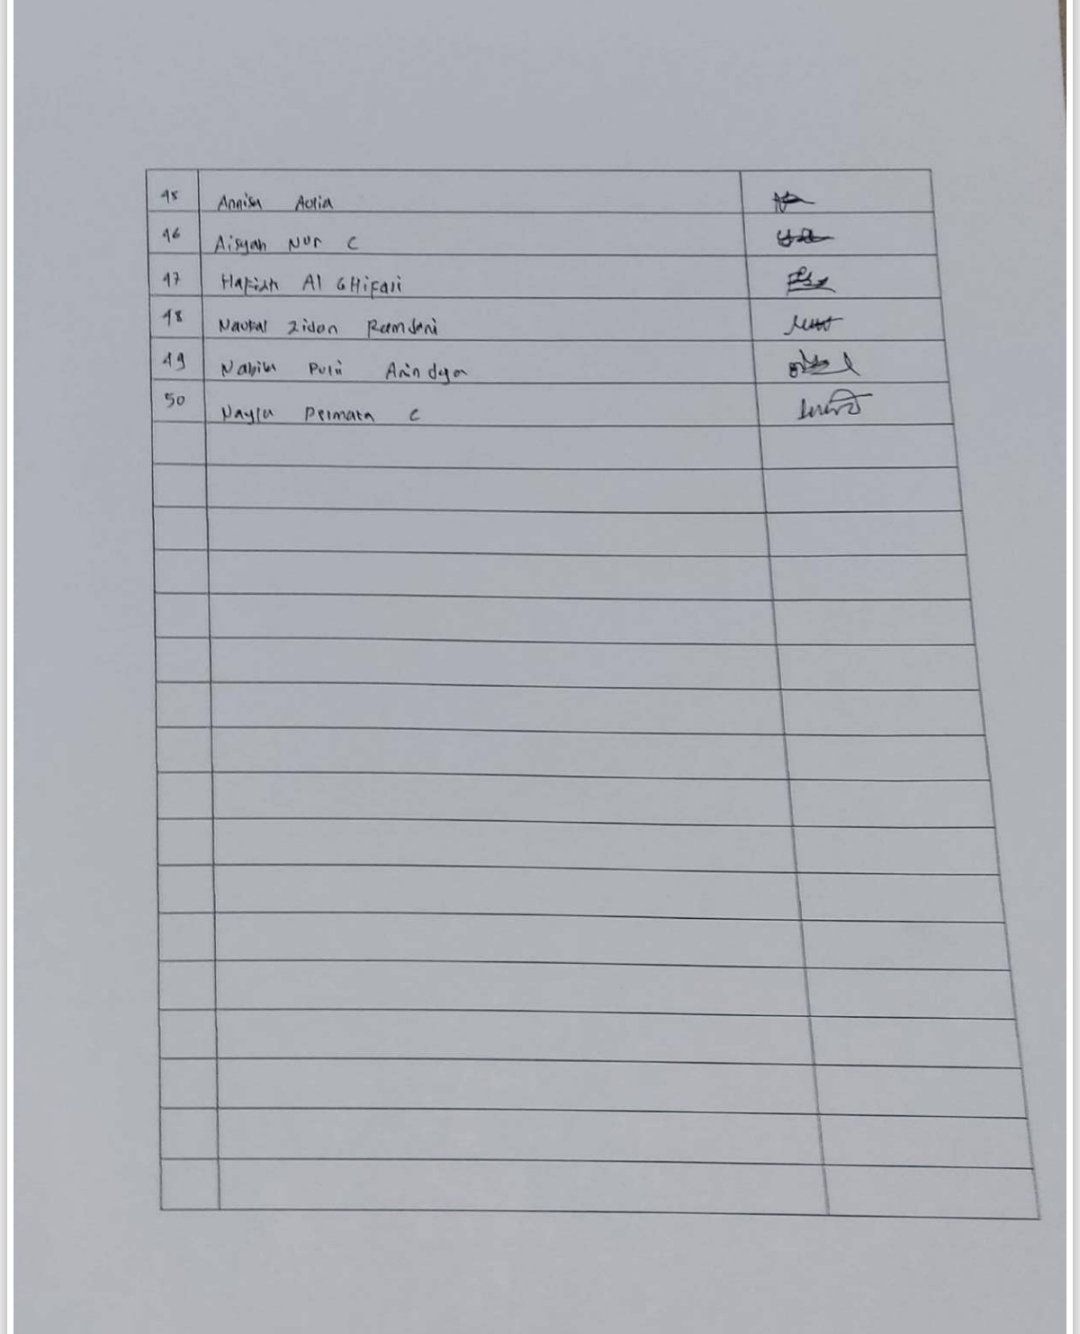 45 Annisa Aulia
46 Aisyah Nur C
47 Hafizh Al GHifari
48 Naufal Zidan Ramdani
49 Nabila Putri Arindya
50 Nayla Permata C